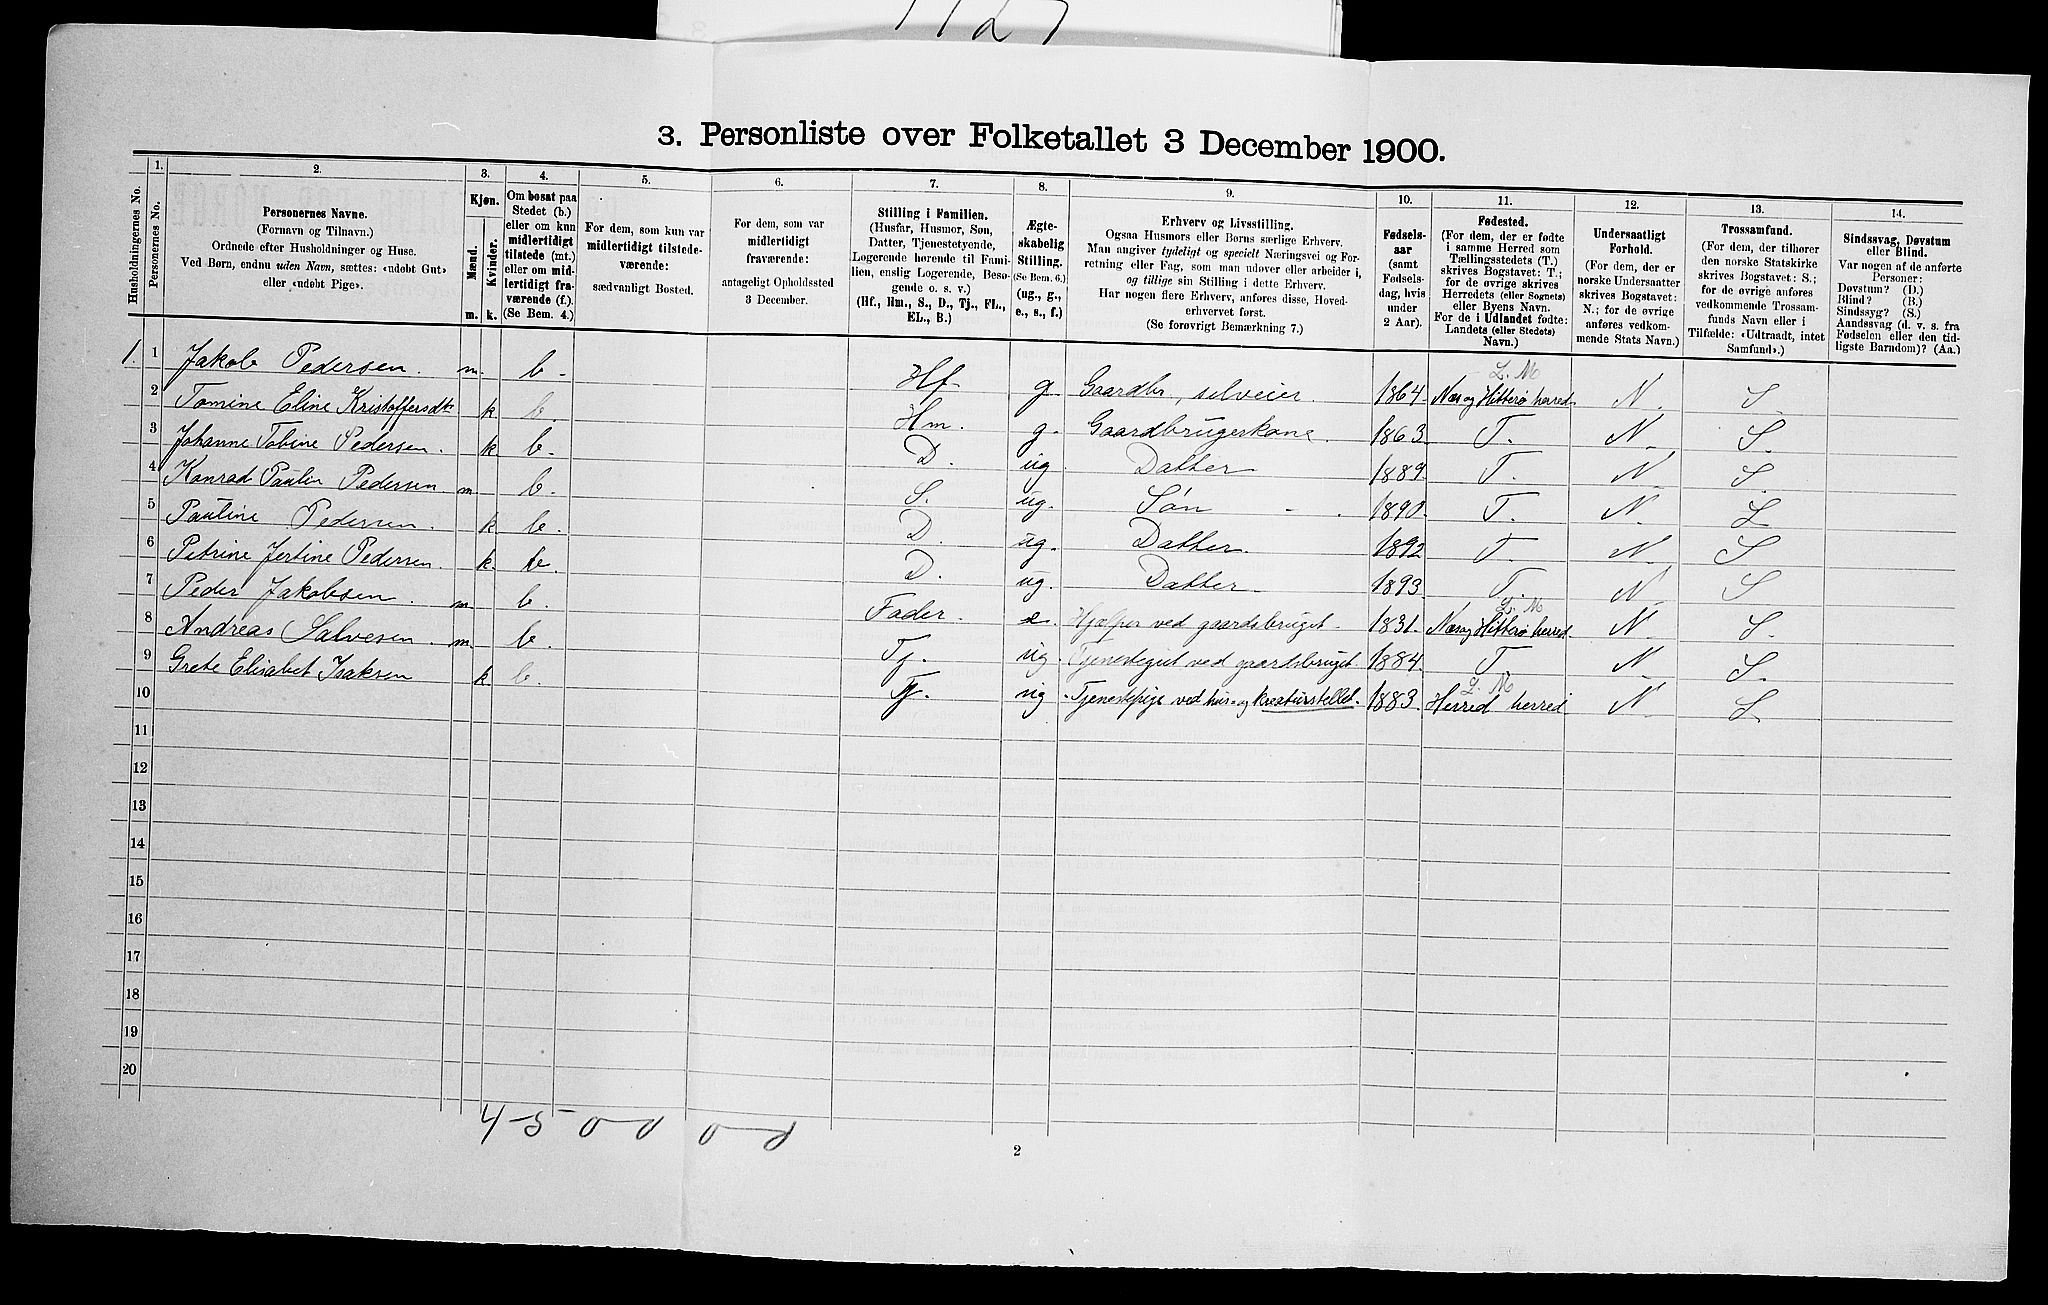 1127
3. Personliste over Folketallet 3 December 1900.
Husholdningernes No.
1.
Personernes No.
2.
Personernes Navne.
(Fornavn og Tilnavn.)
Ordnede efter Husholdninger og Huse.
Ved Børn, endnu uden Navn, sættes: «udøbt Gut»
eller «udøbt Pige».
3.
Kjøn.
Mænd.
Kvinder.
m. k.
4.
Om bosat paa
Stedet (b.)
eller om kun
midlertidigt
tilstede (mt.)
eller om mid-
lertidigt fra-
værende (f.).
(Se Bem. 4.)
5.
For dem, som kun var
midlertidigt tilstede-
værende:
sædvanligt Bosted.
6.
For dem, som var
midlertidigt
fraværende:
antageligt Opholdssted
3 December.
7.
Stilling i Familien.
(Husfar, Husmor, Søn,
Datter, Tjenestetyende,
Logerende hørende til Fami-
lien, enslig Logerende, Besø-
gende o. s. v.)
(Hf., Hm., S., D., Tj., FL.,
EL., B.)
8.
Ægte-
skabelig
Stilling.
(Se Bem. 6.)
(ug., g.,
e., s., f.)
9.
Erhverv og Livsstilling.
Ogsaa Husmors eller Børns særlige Erhverv.
Man angiver tydeligt og specielt Næringsvei og For-
retning eller Fag, som man udøver eller arbeider i,
og tillige sin Stilling i dette Erhverv.
Har nogen flere Erhverv, anføres disse, Hoved-
erhvervet først.
(Se forøvrigt Bemærkning 7.)
10.
Fødsels-
aar
(samt
Fødsels-
dag, hvis
under
2 Aar).
11.
Fødested.
(For dem, der er fødte
i samme Herred som
Tællingsstedets (T.)
skrives Bogstavet: T.;
for de øvrige skrives
Herredets (eller Sognets)
eller Byens Navn.
For de i Udlandet fødte:
Landets (eller Stedets)
Navn.)
12.
Undersaatligt
Forhold.
(For dem, der er
norske Undersaatter
skrives Bogstavet:
N.; for de øvrige
anføres vedkom-
mende Stats Navn.)
13.
Trossamfund.
(For dem, der tilhører
den norske Statskirke
skrives Bogstavet: S.;
for de øvrige anføres
vedkommende Trossam-
funds Navn eller i
Tilfælde: «Udtraadt, intet
Samfund».)
14.
Sindssvag, Døvstum
eller Blind.
Var nogen af de anførte
Personer:
Døvstum? (D.)
Blind? (B.)
Sindssyg? (S.)
Aandssvag (d. v. s. fra
Fødselen eller den tid-
ligste Barndom)? (Aa.)
L. M
1. 1 Jakob Pedersen. m. b. Hf. g. Gaardbr, selveier. 1864 Næs og Hitterø herred N. S.
2 Tomine Eline Kristoffersdtr k. b. Hm. g. Gaardbrugerkone. 1863. T. N. S.
3 Johanne Tobine Pedersen. k. b. D. ug. Datter 1889. T. N. S
4 Konrad Paulin Pedersen. m. b. S. ug. Søn 1890. T. N. S
5 Pauline Pedersen. k. b. D. ug. Datter. 1892 T. N. S
6 Petrine Jertine Pedersen. k. b. D. ug. Datter. 1893. T. N. S
L. M
7 Peder Jakobsen. m. b. Fader. e. Hjælper ved gaardsbruget. 1831. Næs og Hitterø herred N. S.
8 Andreas Salvesen. m. b. Tj. ug. Tjenestegut ved gaardsbruget 1884. T. N. S.
L. M
9 Grete Elisabet Isaksen k. b. Tj. ug Tjenestepige ved hus- og kreaturstellet. 1883. Herred herred N. S.
10
11
12
13
14
15
16
17
18
19
20
4-5 0 0 0 0
2